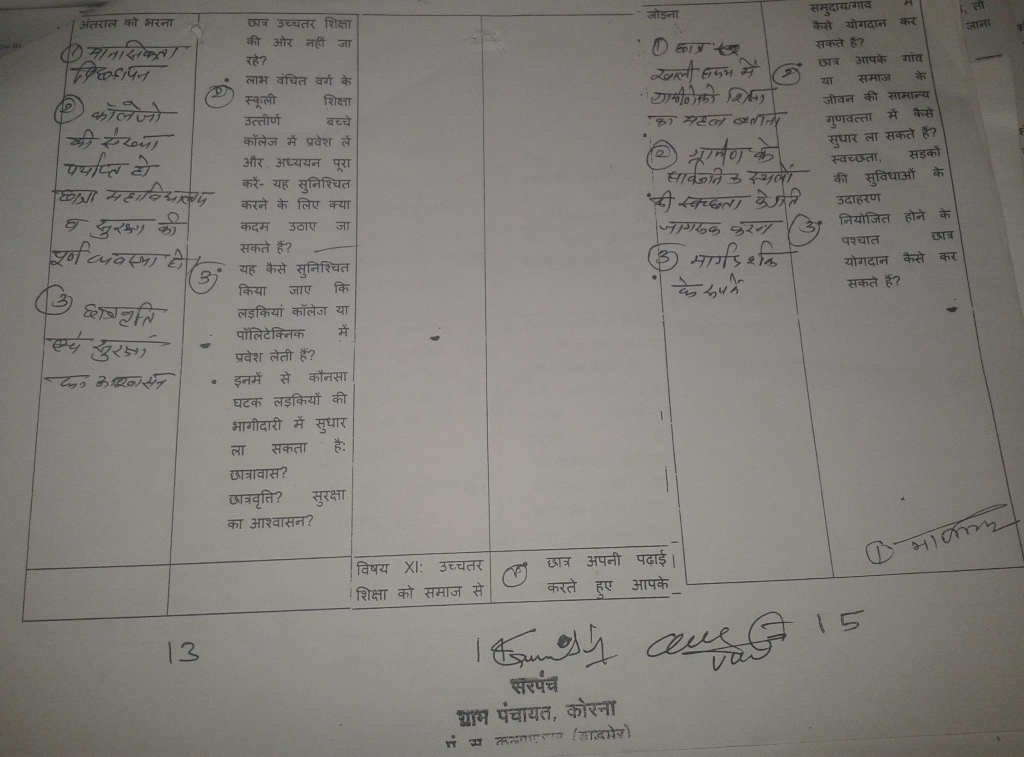 अंतराल को भरना
① मानसिकता
पिछड़ापन
② कॉलेजो
की संख्या
पर्याप्त हो
छात्रा महाविद्यालय
व सुरक्षा की
पूर्ण व्यवस्था हो
③ छात्रवृति
एवं सुरक्षा
का आश्वासन
छात्र उच्चतर शिक्षा
की ओर नहीं जा
रहे?
② लाभ वंचित वर्ग के
स्कूली शिक्षा
उत्तीर्ण बच्चे
कॉलेज में प्रवेश लें
और अध्ययन पूरा
करें- यह सुनिश्चित
करने के लिए क्या
कदम उठाए जा
सकते हैं?
③ यह कैसे सुनिश्चित
किया जाए कि
लड़कियां कॉलेज या
पॉलिटेक्निक में
प्रवेश लेती हैं?
• इनमें से कौनसा
घटक लड़कियों की
भागीदारी में सुधार
ला सकता है:
छात्रावास?
छात्रवृत्ति? सुरक्षा
का आश्वासन?
विषय XI: उच्चतर
शिक्षा को समाज से
① छात्र अपनी पढ़ाई
करते हुए आपके
जोड़ना
① छात्र
खाली समय में
ग्रामीणोको शिक्षा
का महत्व बताना
② ग्रामीण के
सार्वजनिक स्थलों
की स्वच्छता के प्रति
जागरुक करना
③ मार्गदर्शक
के रूप में
समुदाय/गांव में
कैसे योगदान कर
सकते है?
② छात्र आपके गांव
या समाज के
जीवन की सामान्य
गुणवत्ता में कैसे
सुधार ला सकते हैं?
स्वच्छता, सड़कों
की सुविधाओं के
उदाहरण
③ नियोजित होने के
पश्चात छात्र
योगदान कैसे कर
सकते हैं?
तो
जाना
①
13
15
सरपंच
ग्राम पंचायत, कोरना
(बाड़मेर)